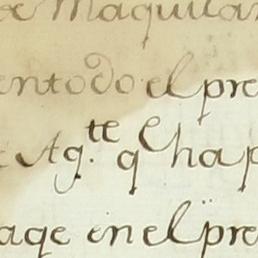 de Maquilar
entodo el pre
Ag.te q e hap
aqe en el pre